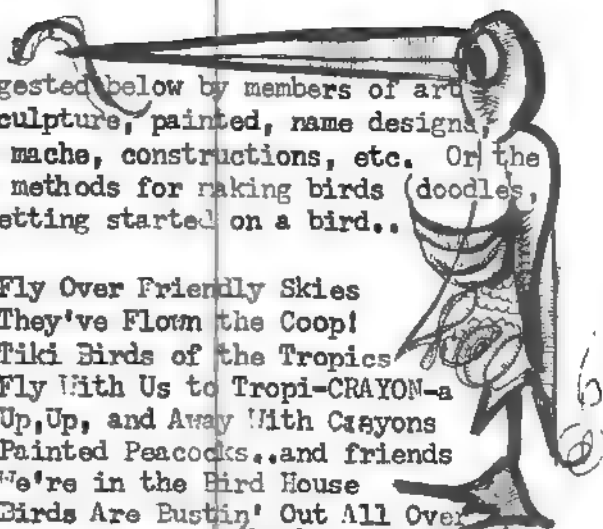 gested below by members of art
culpture, painted, name designs,
mache, constructions, etc. Or the
methods for making birds (doodles,
etting started on a bird..
Fly Over Friendly Skies
They've Flown the Coop!
Tiki Birds of the Tropics
Fly With Us to Tropi-CRAYON-a
Up,Up, and Away With Crayons
Painted Peacocks..and friends
We're in the Bird House
Birds Are Bustin' Out All Over